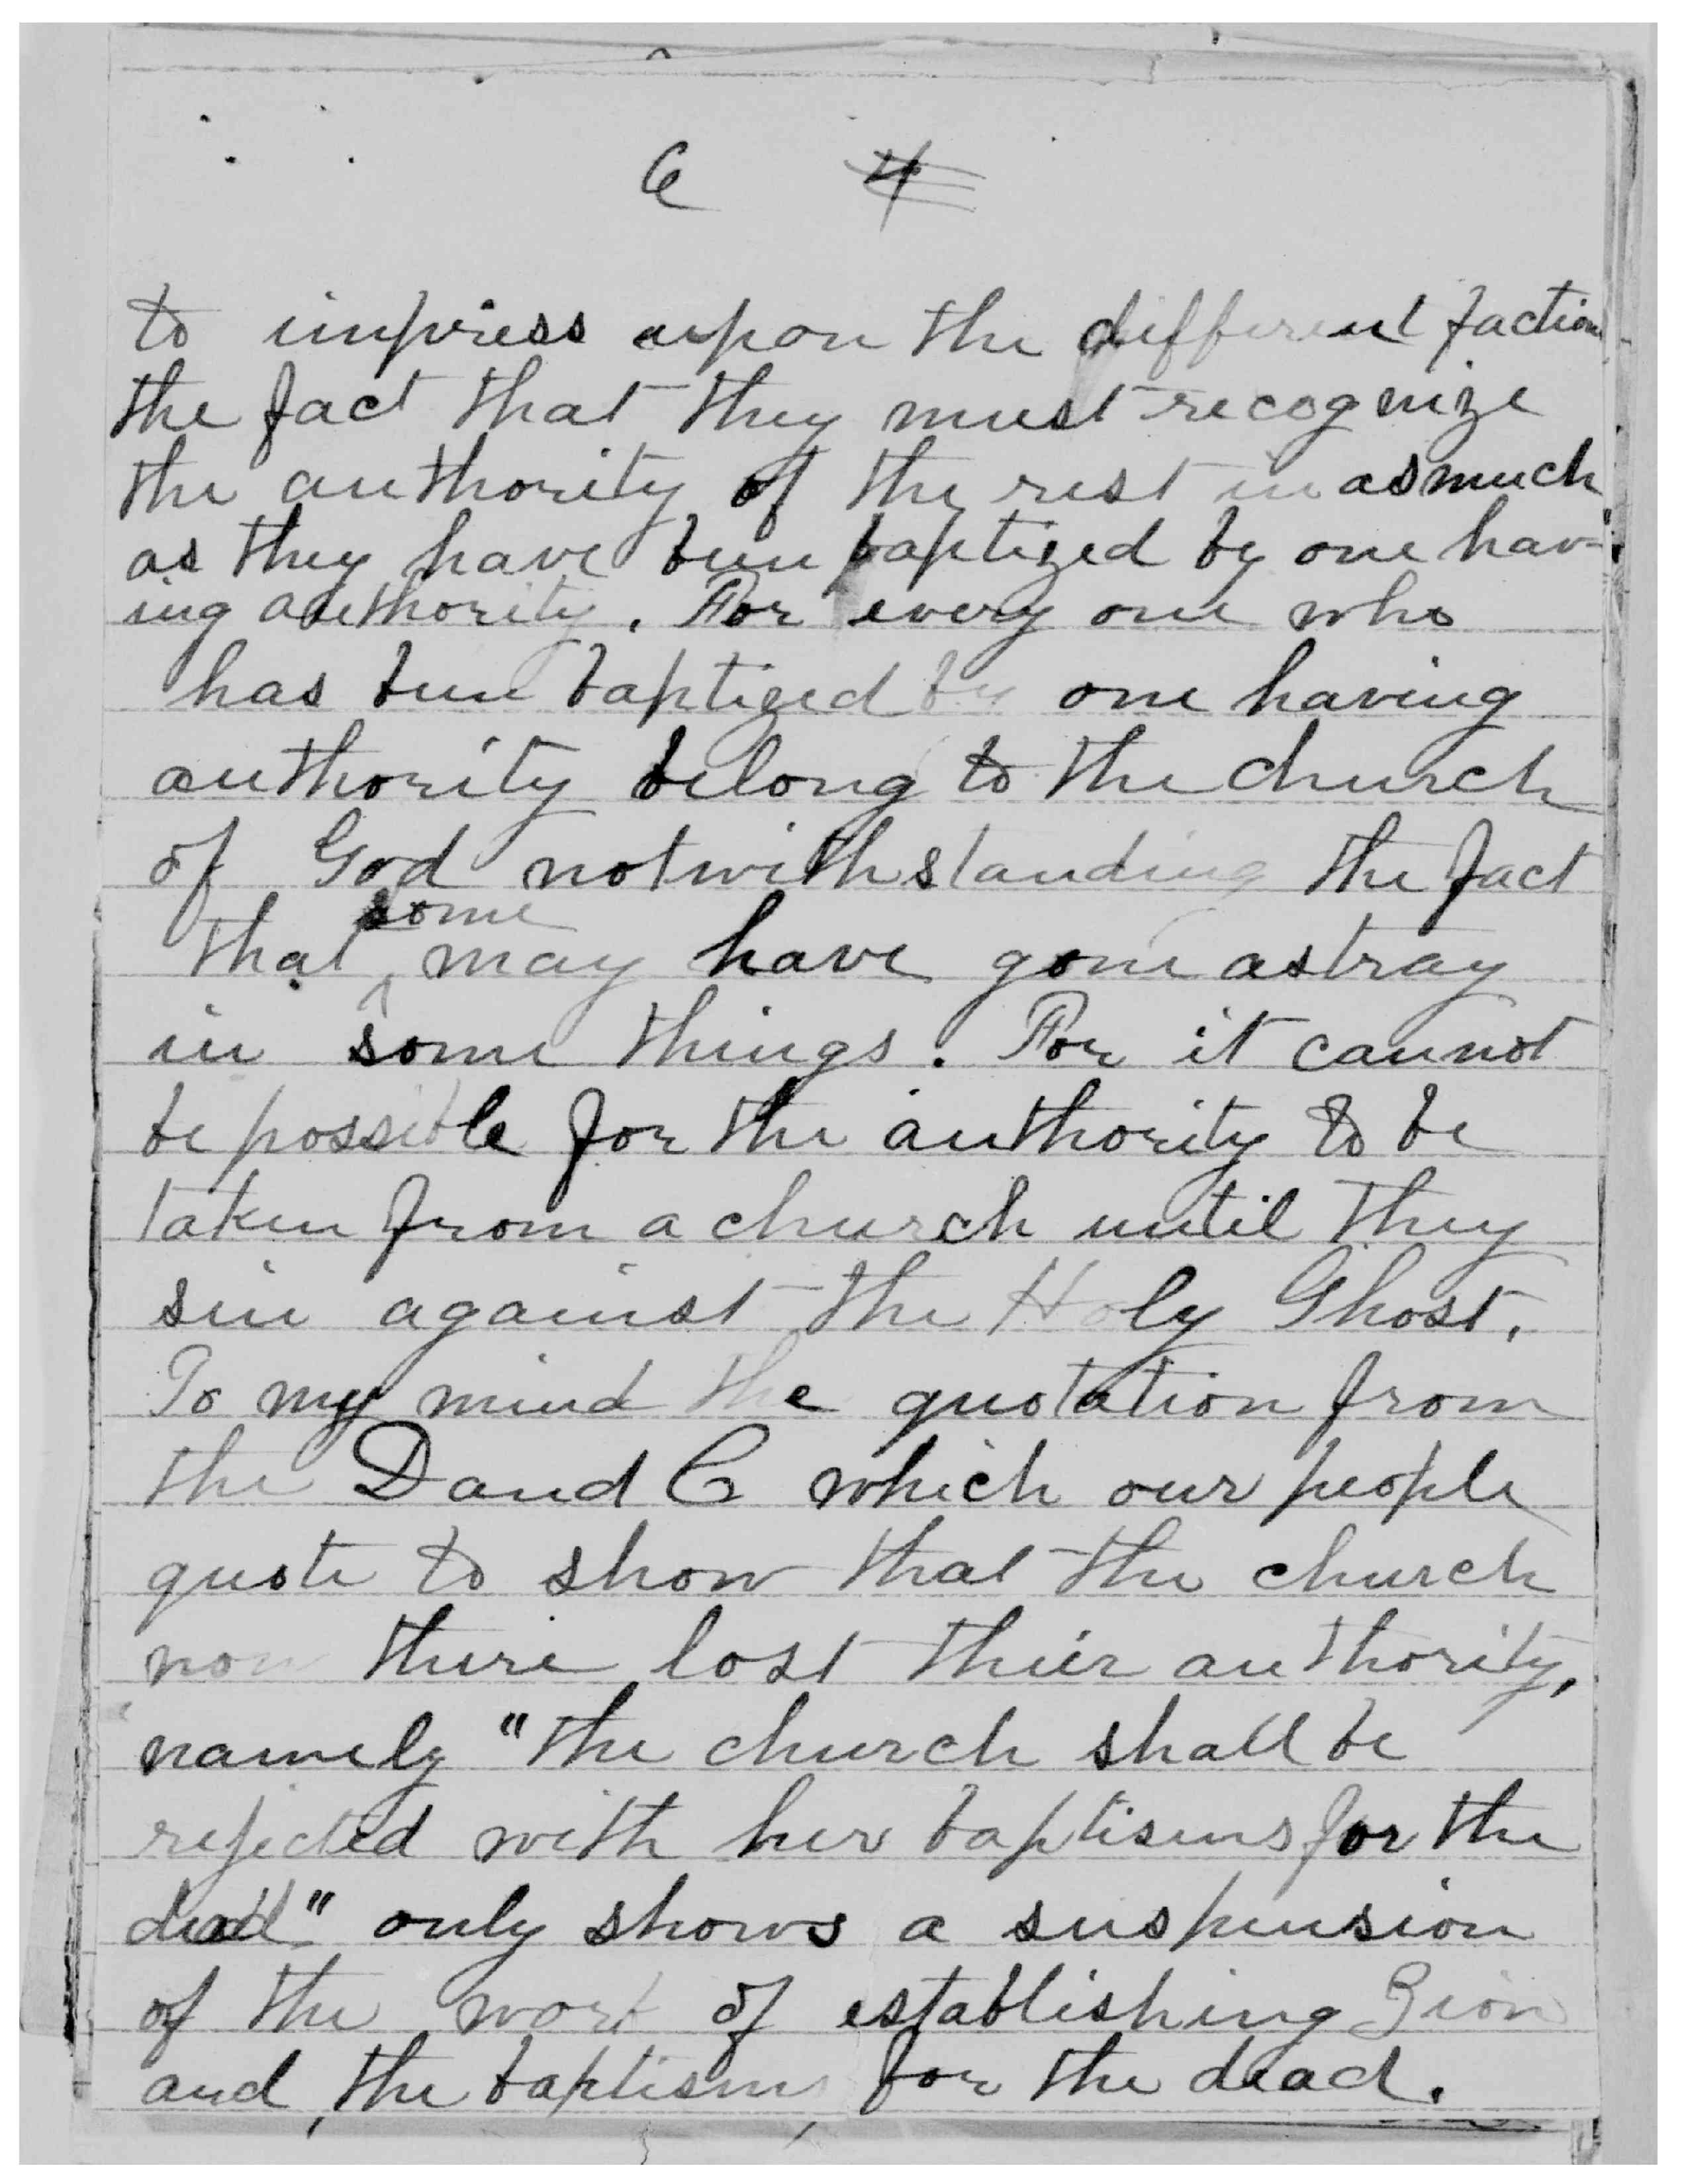 6 4
to impress upon the different faction
the fact that they must recognize
the authority of the rest in asmuch
as they have been baptized by one hav-
ing authority. For every one who
has been baptized by one having
authority belong to the church
of God notwithstanding the fact
that some may have gone astray
in some things. For it cannot
be possible for the authority to be
taken from a church until they
sin against the Holy Ghost.
To my mind the quotation from
the D and C which our people
quote to show that the church
now there lost their authority,
namely "the church shall be
rejected with her baptisms for the
dead" only shows a suspension
of the work of establishing Zion
and the baptisms for the dead.